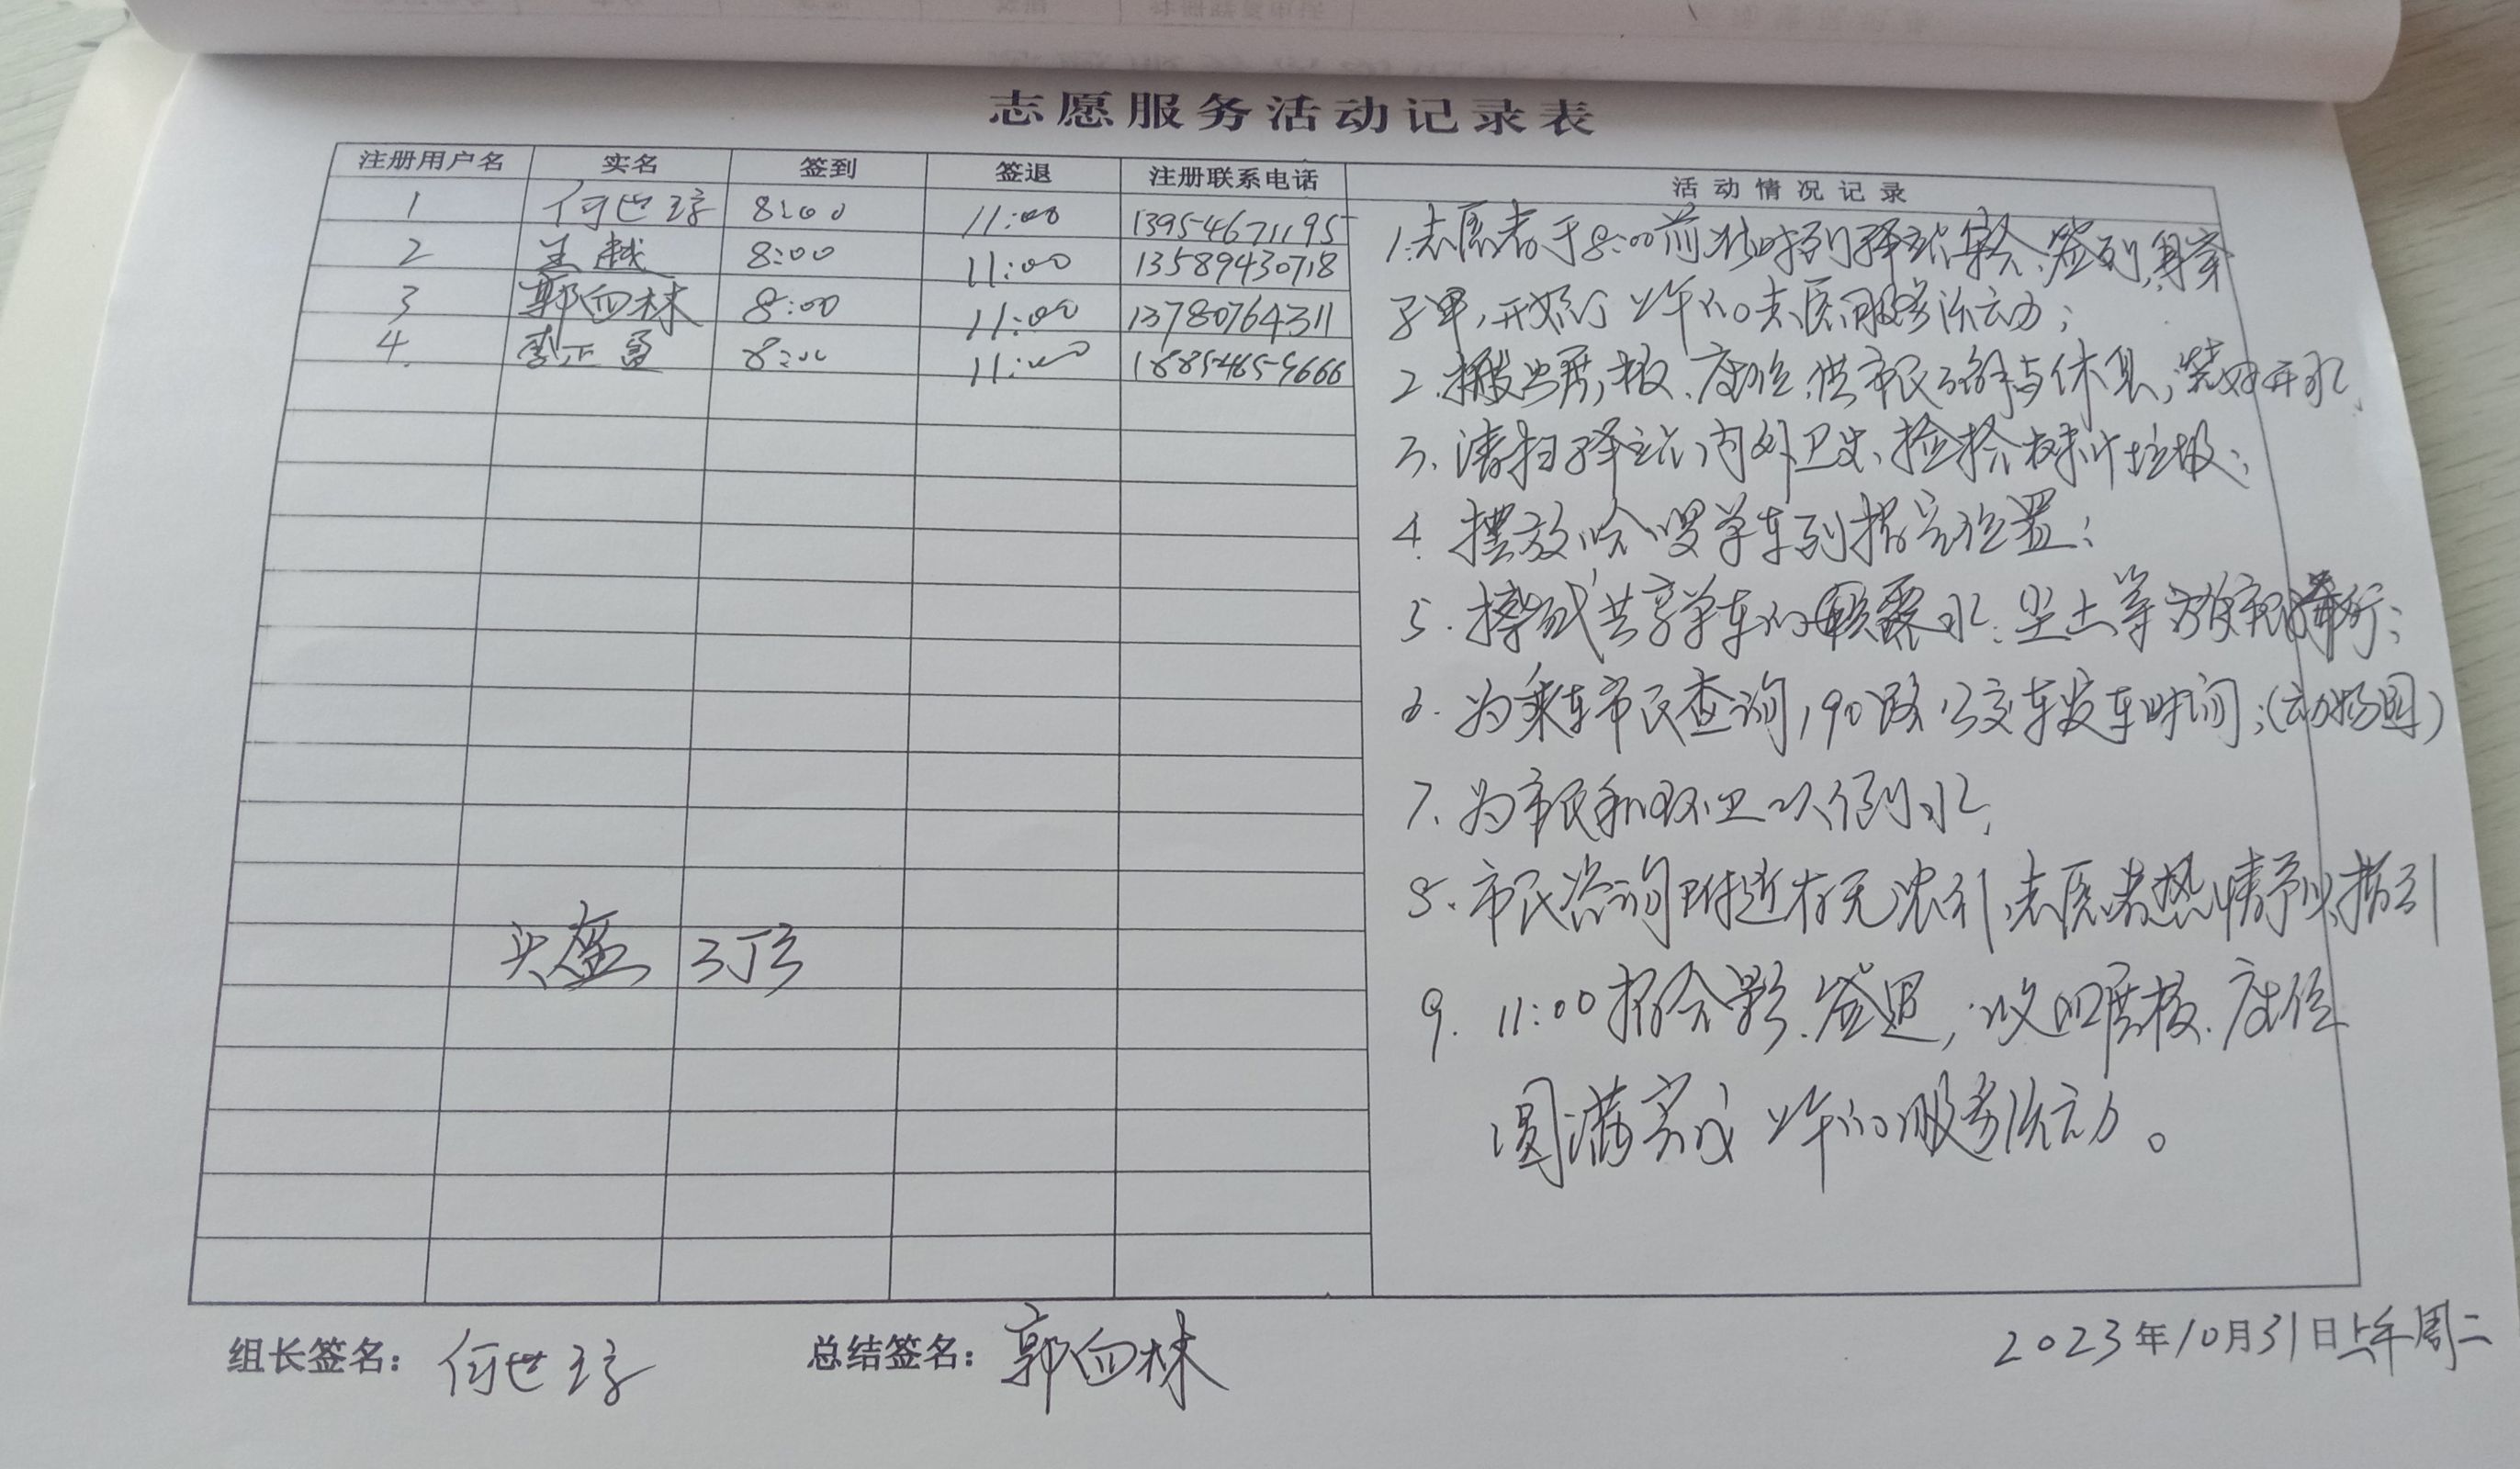 志愿服务活动记录表
注册用户名 实名 签到 签退 注册联系电话 活动情况记录
1 何世 8:00 11:00 13954671195
2 王越 8:00 11:00 13589430718
3 郭向林 8:00 11:00 13780764311
4. 李正 8:00 11:00 18854659666
1.志愿者于8:00前准时到驿站集合、签到,
开始了上午的志愿服务活动;
2.搬出展板、座位,供市民 与休息,装好开水、
3、清扫驿站内外卫生、捡拾树叶垃圾;
4 摆放哈啰单车到指定位置;
5.擦拭共享单车的 露水、尘土等 方便市民 行;
6.为乘车市民查询190路公交车发车时间;(动物园)
7、为市民和环卫 倒水,
8、市民咨询附近有无农行,志愿者热情予以指引
头盔 3顶
9. 11:00拍合影、签退,收回展板、座位
圆满完成上午的服务活动。
组长签名: 何世 总结签名: 郭向林 2023年10月31日上午周二